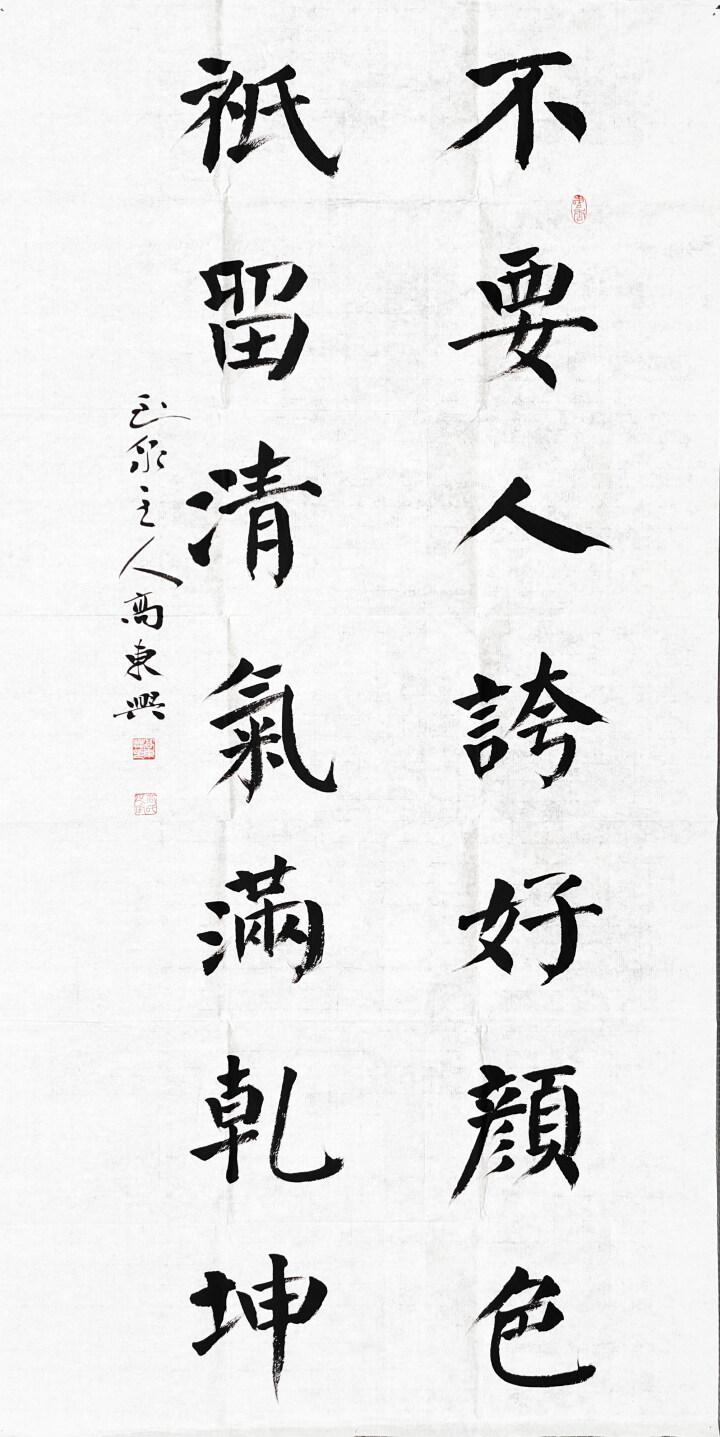 不要人誇好顔色
祇留清氣滿乾坤
玉泉主人高東興